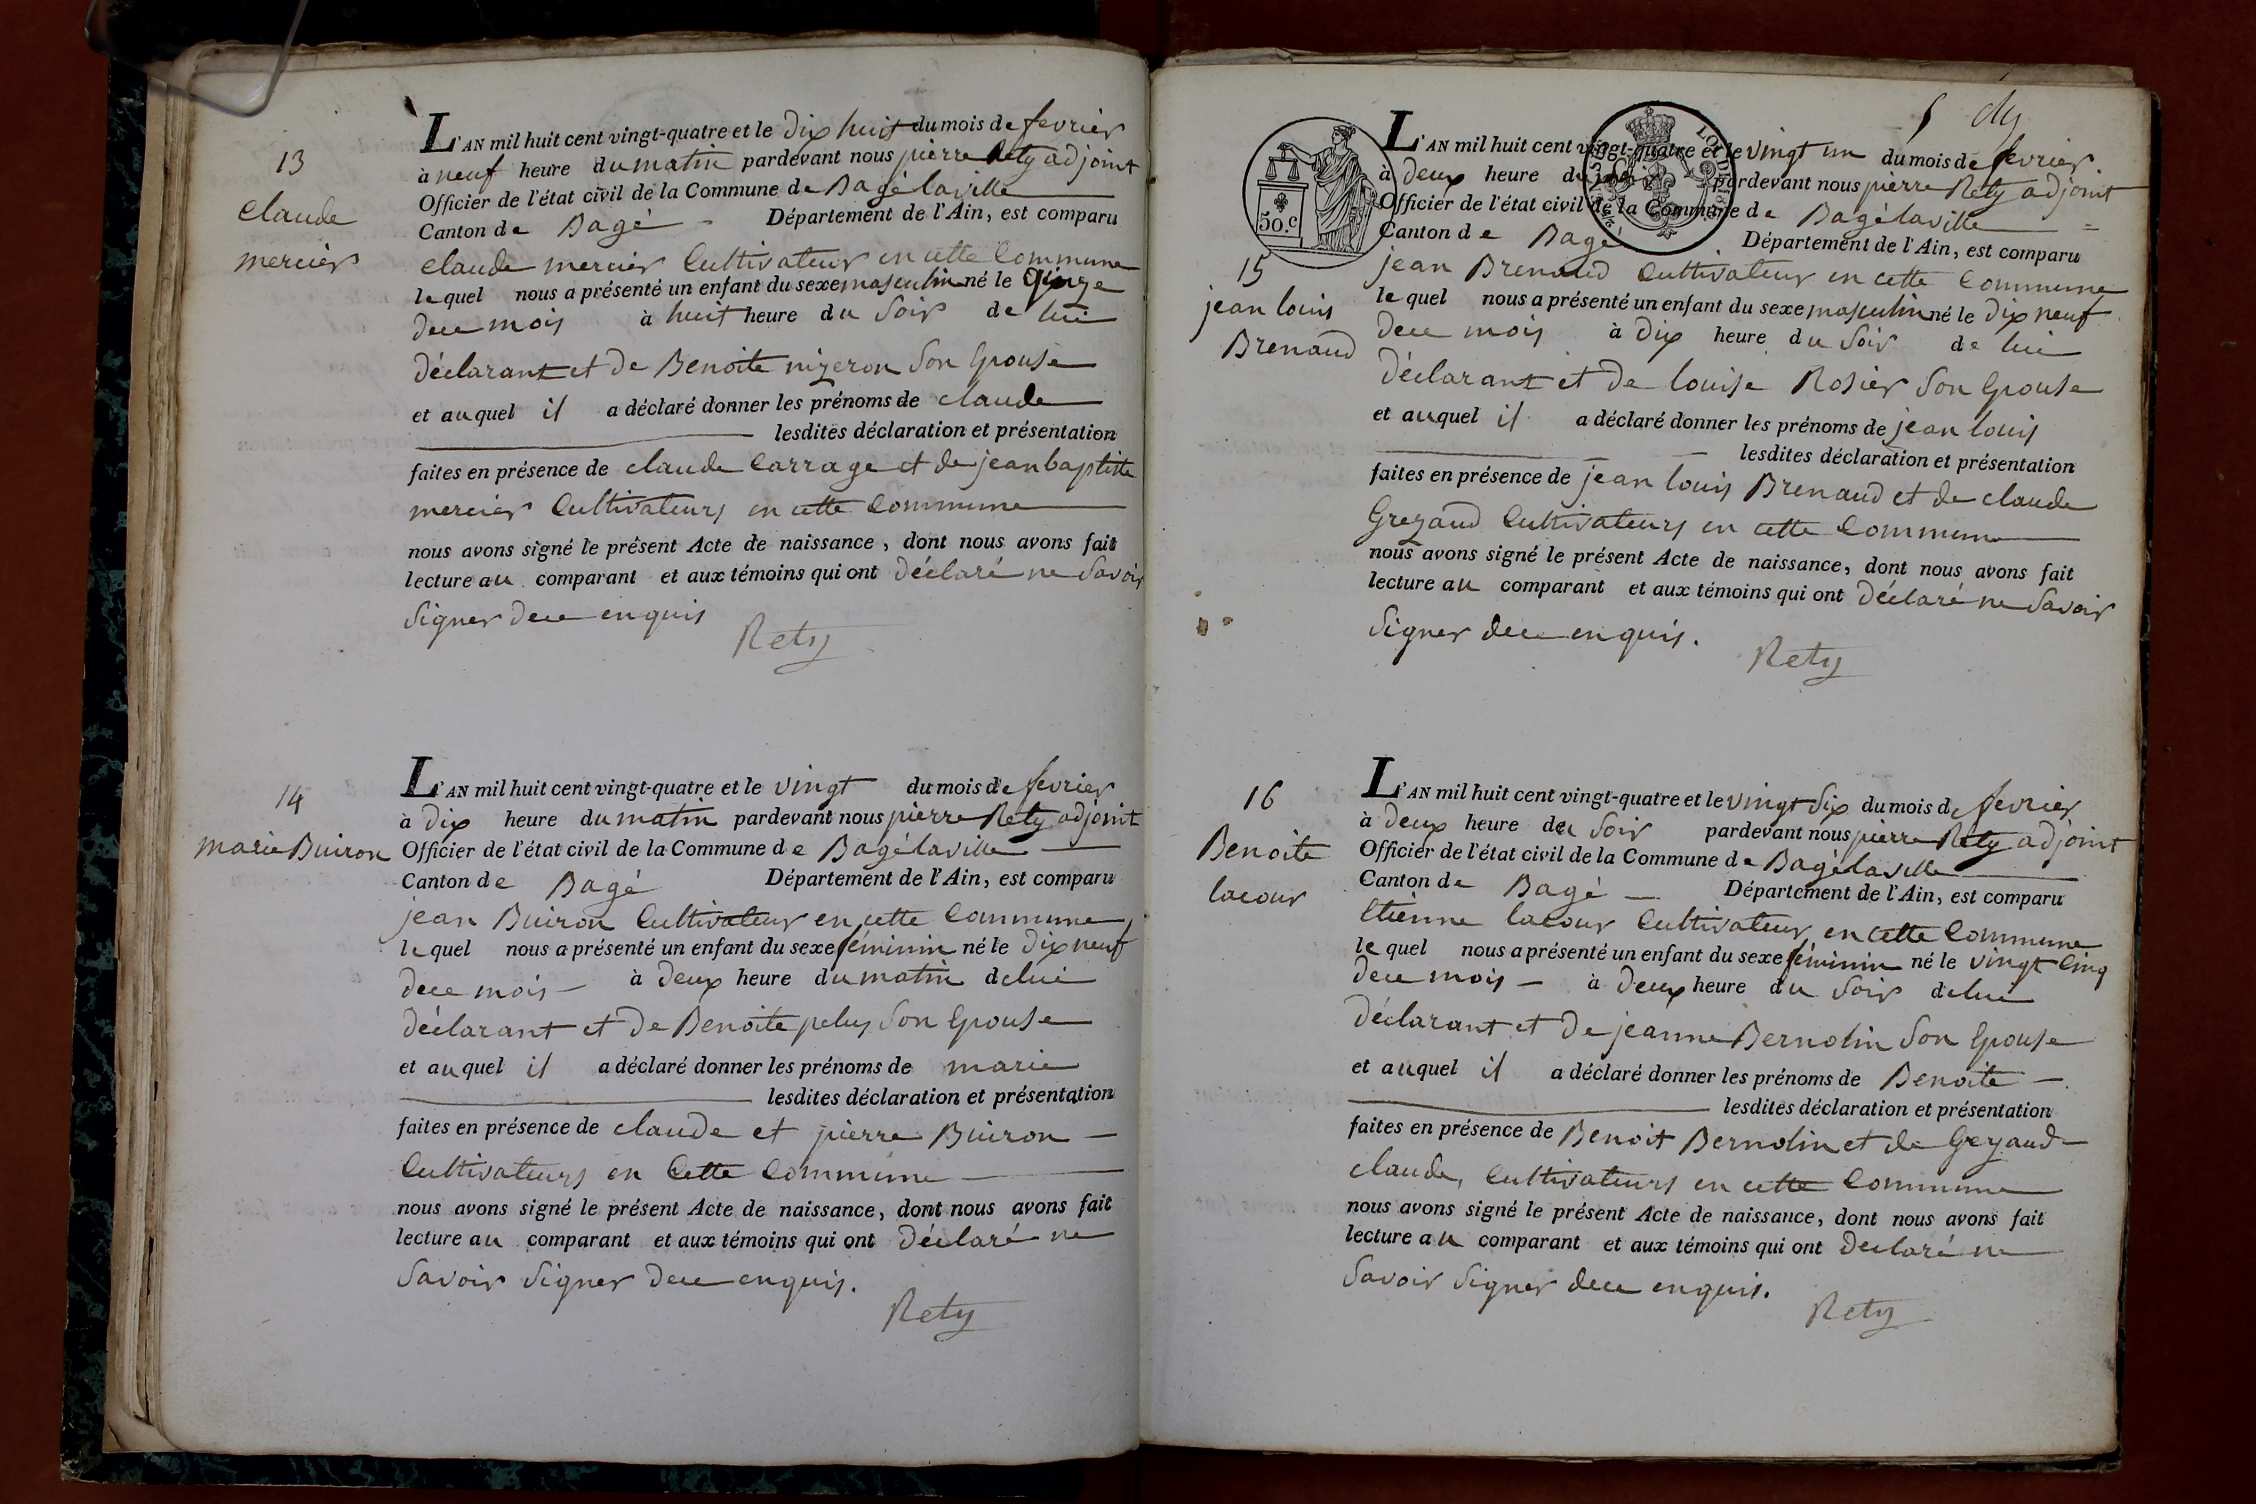 13
claude
mercier
L'AN mil huit cent vingt-quatre et le dix huit du mois de fevrier
à neuf heure du matin pardevant nous pierre Rety adjoint
Officier de l'état civil de la Commune de Bagélaville
Canton de Bagé Département de l'Ain, est comparu
claude mercier Cultivateur en cette Commune
le quel nous a présenté un enfant du sexe masculin né le Quinze
de ce mois à huit heure du soir de lui
déclarant et de Benoite nizeron son Epouse
et auquel il a déclaré donner les prénoms de claude
lesdites déclaration et présentation
faites en présence de claude Carrage et de jean baptiste
mercier Cultivateurs en cette Commune
nous avons signé le présent Acte de naissance, dont nous avons fait
lecture au comparant et aux témoins qui ont déclaré ne savoir
signer de ce enquis
Rety
14
marie Buiron
L'AN mil huit cent vingt-quatre et le vingt du mois de fevrier
à dix heure du matin pardevant nous pierre Rety adjoint
Officier de l'état civil de la Commune de Bagélaville
Canton de Bagé Département de l'Ain, est comparu
jean Buiron Cultivateur en cette Commune
le quel nous a présenté un enfant du sexe féminin né le dix neuf
de ce mois à deux heure du matin de lui
déclarant et de Benoite pelus son Epouse
et auquel il a déclaré donner les prénoms de marie
lesdites déclaration et présentation
faites en présence de claude et pierre Buiron
Cultivateurs en Cette Commune
nous avons signé le présent Acte de naissance, dont nous avons fait
lecture au comparant et aux témoins qui ont déclaré ne
savoir signer de ce enquis.
Rety
5
50.c
15
jean louis
Brenaud
L'AN mil huit cent vingt-quatre et le vingt un du mois de fevrier
à deux heure du soir pardevant nous pierre Rety adjoint
Officier de l'état civil de la Commune de Bagélaville
Canton de Bagé Département de l'Ain, est comparu
jean Brenaud Cultivateur en cette Commune
le quel nous a présenté un enfant du sexe masculin né le dix neuf
de ce mois à dix heure du soir de lui
déclarant et de louise Rosier son Epouse
et auquel il a déclaré donner les prénoms de jean louis
lesdites déclaration et présentation
faites en présence de jean louis Brenaud et de claude
Grezaud Cultivateurs en cette Commune
nous avons signé le présent Acte de naissance, dont nous avons fait
lecture au comparant et aux témoins qui ont déclaré ne savoir
signer de ce enquis.
Rety
16
Benoite
lacour
L'AN mil huit cent vingt-quatre et le vingt six du mois de fevrier
à deux heure du soir pardevant nous pierre Rety adjoint
Officier de l'état civil de la Commune de Bagélaville
Canton de Bagé Département de l'Ain, est comparu
Etienne lacour Cultivateur en cette Commune
le quel nous a présenté un enfant du sexe féminin né le vingt Cinq
de ce mois à deux heure du soir de lui
déclarant et de jeanne Bernolin son Epouse
et auquel il a déclaré donner les prénoms de Benoite
lesdites déclaration et présentation
faites en présence de Benoit Bernolin et de Grezaud
claude, Cultivateurs en cette Commune
nous avons signé le présent Acte de naissance, dont nous avons fait
lecture au comparant et aux témoins qui ont declaré ne
savoir signer de ce enquis.
Rety